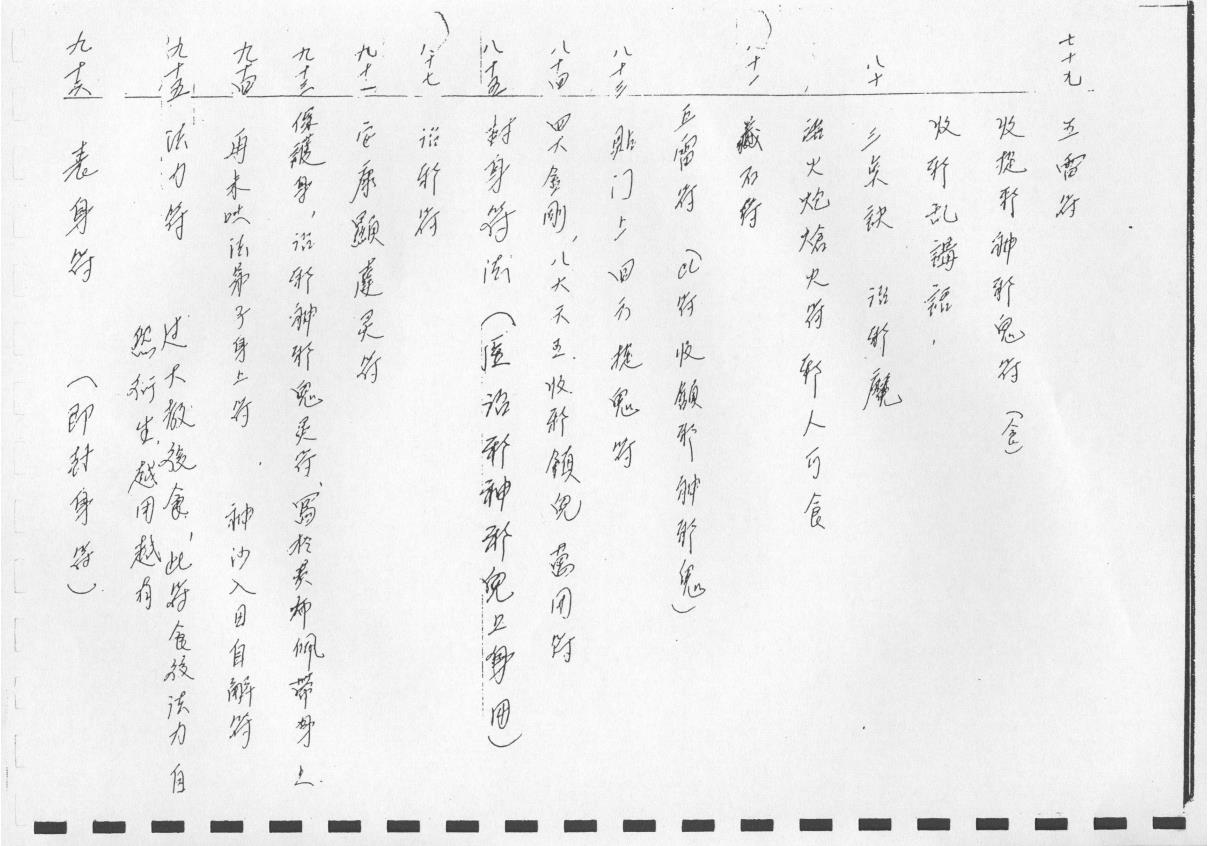 七十九 五雷符
收捉邪神邪鬼符（食）
收邪乱講話，
八十 三奌訣 治邪魔
治火炮熗火符 邪人可食
八十一 藏石符
五雷符 （此符收鎖邪神邪鬼）
八十三 貼门上四方捉鬼符
八十四 四大金剛，八大天王.收邪鎖鬼萬用符
八十五 封身符法（医治邪神邪鬼上身用）
八十七 治邪符
九十二 康顯灵符
九十三 保護身，治邪神邪鬼灵符，寫於黄布佩帶身上.
九十四 再未 法弟子身上符 神沙入目自解符
九十五 法力符 过大教後食，此符食後法力自
然衍生，越用越有
九十六 表身符 （即封身符）